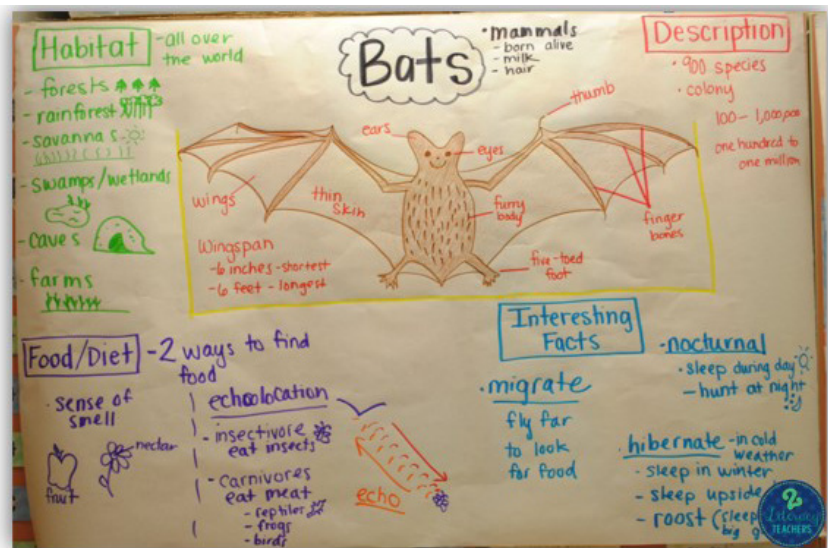 Habitat -all over
the world
- forests
- rainforest
- savannas
- swamps/wetlands
- caves
- farms
Bats
• mammals
- born alive
- milk
- hair
Description
• 900 species
• colony
one hundred to
one million
thumb
ears
eyes
wings
thin
skin
furry
body
finger
bones
five-toed
foot
Wingspan
-6 inches -shortest
-6 feet - longest
Food/Diet -2 ways to find
food
• sense of
smell
nectar
fruit
echolocation
- insectivore
eat insects
- carnivores
eat meat
- reptiles
- frogs
- birds
echo
Interesting
Facts
• migrate
fly far
to look
for food
• nocturnal
• sleep during day
- hunt at night
hibernate -in cold
weather
- sleep in winter
- sleep upside
- roost (sleep
big
2
Literacy
TEACHERS